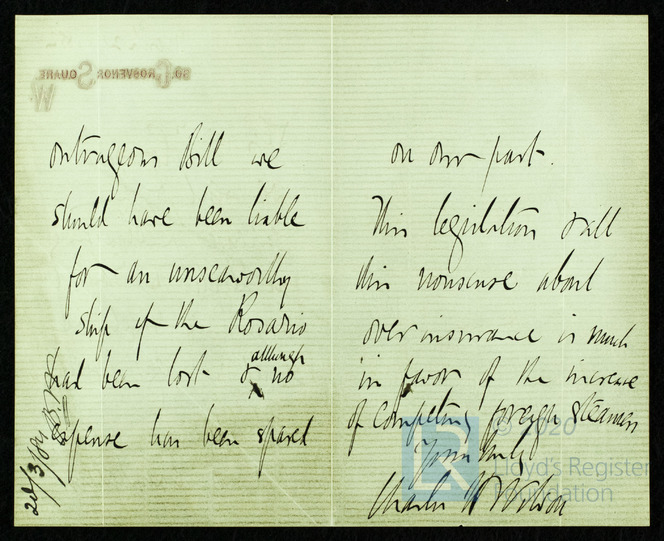 50. GROSVENOR SQUARE
W
outrageous Bill we
should have been liable
for an unseaworthy
ship if the Rosario
had been lost & although no
expense has been spared
on our part.
This legislation & all
this nonsense about
over insurance is much
in favor of the increase
of competing foreign steamers
Yours truly
Charles H Wilson
© 2020
Lloyd's Register
Foundation